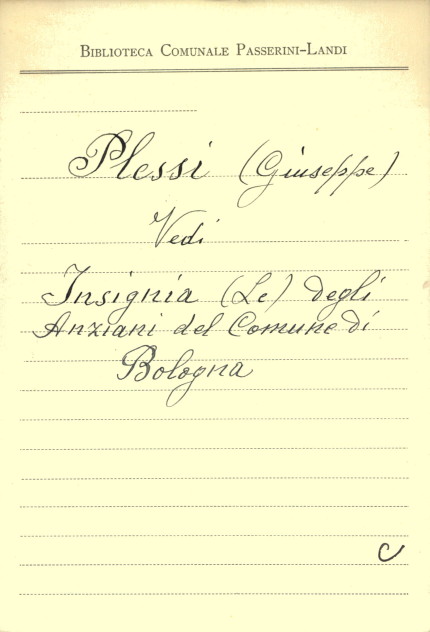 BIBLIOTECA COMUNALE PASSERINI-LANDI
Plessi (Giuseppe)
Vedi
Insignia (Le) degli
Anziani del Comune di
Bologna
C